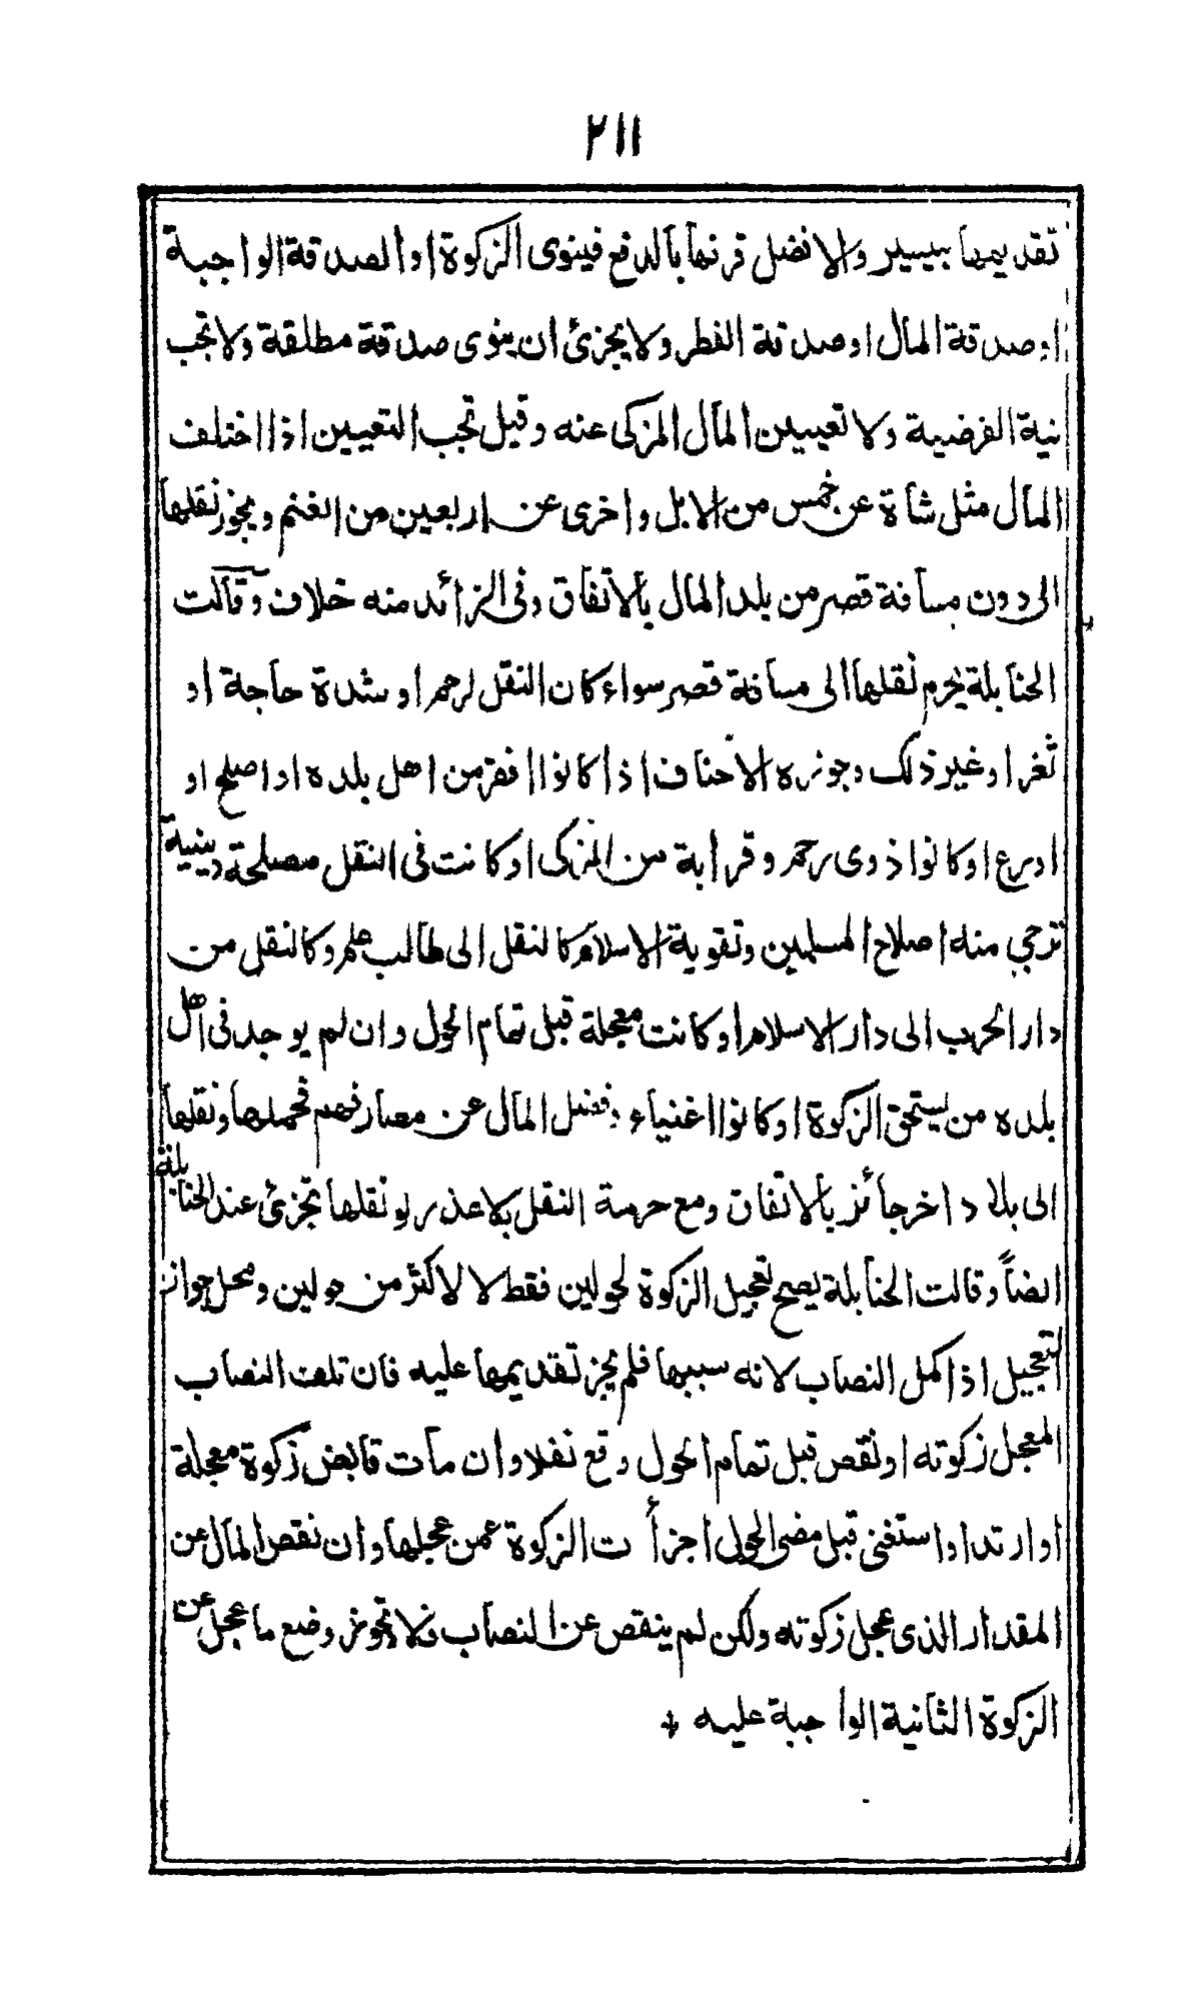 ٢١١
تقديمها بيسير والافضل قرنها بالدفع فينوى الزكوة او الصدقة الواجبة
او صدقة المال او صدقة الفطر ولا يجزئ ان ينوى صدقة مطلقة ولا تجب
نية الفرضية ولا تعيين المال المزكى عنه وقيل تجب التعيين اذا اختلف
المال مثل شاة عن خمس من الابل واخرى عن اربعين من الغنم ويجوز نقلها
الى دون مسافة قصر من بلد المال بالاتفاق وفى الزائد منه خلاف وقالت
الحنابلة يحرم نقلها الى مسافة قصر سواء كان النقل لرحم او شدة حاجة او
ثغر او غير ذلك وجوزه الاحناف اذا كانوا افقر من اهل بلده او اصلح او
اورع او كانوا ذوى رحم وقرابة من المزكى او كانت فى النقل مصلحة دينية
ترجي منه اصلاح المسلمين وتقوية الاسلام كالنقل الى طالب علم وكالنقل من
دار الحرب الى دار الاسلام او كانت معجلة قبل تمام الحول وان لم يوجد فى اهل
بلده من يستحق الزكوة او كانوا اغنياء وفضل المال عن مصارفهم فحملها ونقلها
الى بلاد اخر جائز بالاتفاق ومع حرمة النقل بلا عذر لو نقلها تجزئ عند الحنابلة
ايضاً وقالت الحنابلة يصح تعجيل الزكوة لحولين فقط لا لاكثر من حولين ومحل جواز
التعجيل اذا كمل النصاب لانه سببها فلم يجز تقديمها عليه فان تلف النصاب
المعجل زكوته او نقص قبل تمام الحول وقع نفلا وان مات قابض زكوة معجلة
او ارتد او استغنى قبل مضى الحول اجزأت الزكوة عمن عجلها وان نقص المال عن
المقدار الذى عجل زكوته ولكن لم ينقص عن النصاب فلا تجوز وضع ما عجل عن
الزكوة الثانية الواجبة عليه +